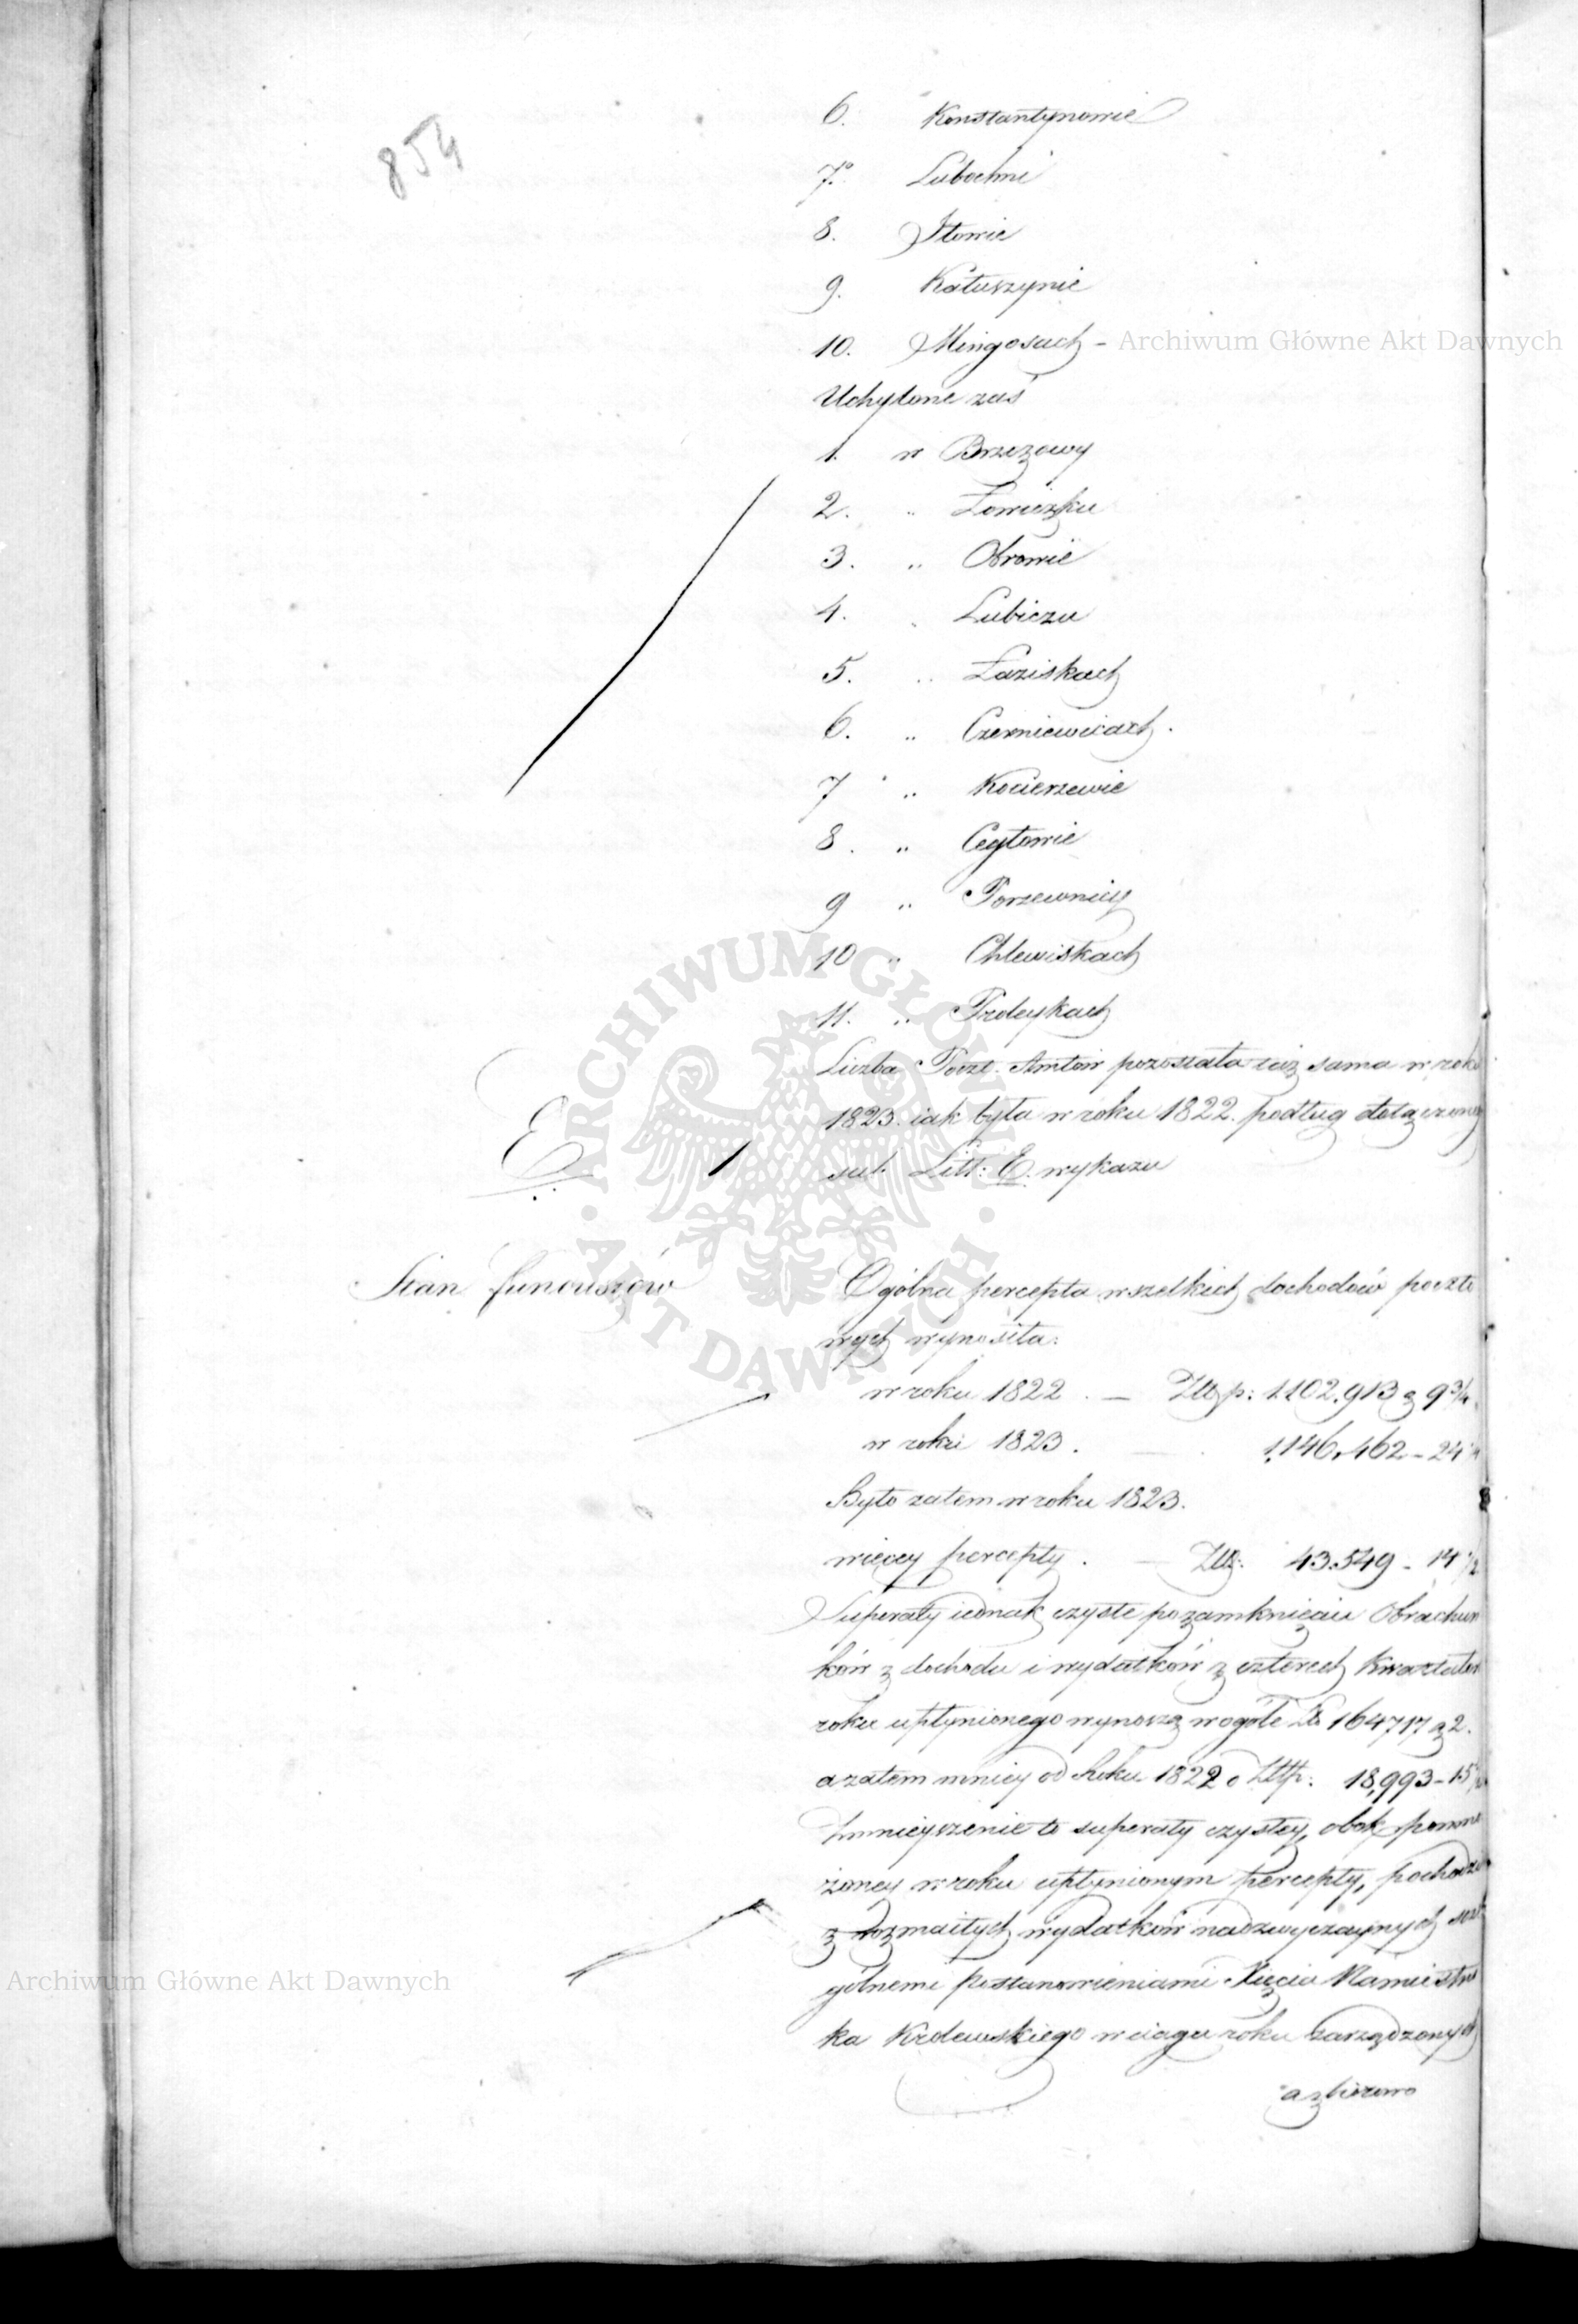 854
6. Konstantynowie
7.° Lubochni
8. Iłowie
9. Kałuszynie
10. Mingosach -
Uchylone zaś
1. w Brzozowy
2. " Łowiczku
3. " Obrowie
4. " Lubiczu
5. " Łaziskach
6. " Czerniewicach.
7 " Kocierzewie
8. " Cegłowie
9 "
10 " Chlewiskach
11. "
Liczba Poczt. Amtów pozostała też sama w roku
1823. iak była w roku 1822. podług dołączone
E sub. Litt: E. wykazu
Stan funduszów
Ogólna percepta wszelkich dochodów poczto
wych wynosiła:
w roku 1822 . — Złłp: 1.102.913 g 9 3/4
w roku 1823 . — 1,146,462 - 24
Było zatem w roku 1823.
więcey percepty . — Złł: 43.549 - 14 1/2
Superaty iednak czyste po zamknięciu Obrachun
ków z dochodu i wydatków z czterech Kwartałów
roku upłynionego wynoszą w ogóle Zł 164717 g 2.
a zatem mniey od Roku 1822 o Złłp: 18,993 - 15
Zmnieyszenie to superaty czystey, obok pomno
żoney w roku upłynionym percepty, pochodzi
z rozmaitych wydatków nadzwyczaynych szcze
gólnemi postanowieniami Xięcia Namiestni
ka Królewskiego w ciągu roku zarządzonych
Archiwum Główne Akt Dawnych
ARCHIWUM GŁÓWNE AKT DAWNYCH
Archiwum Główne Akt Dawnych